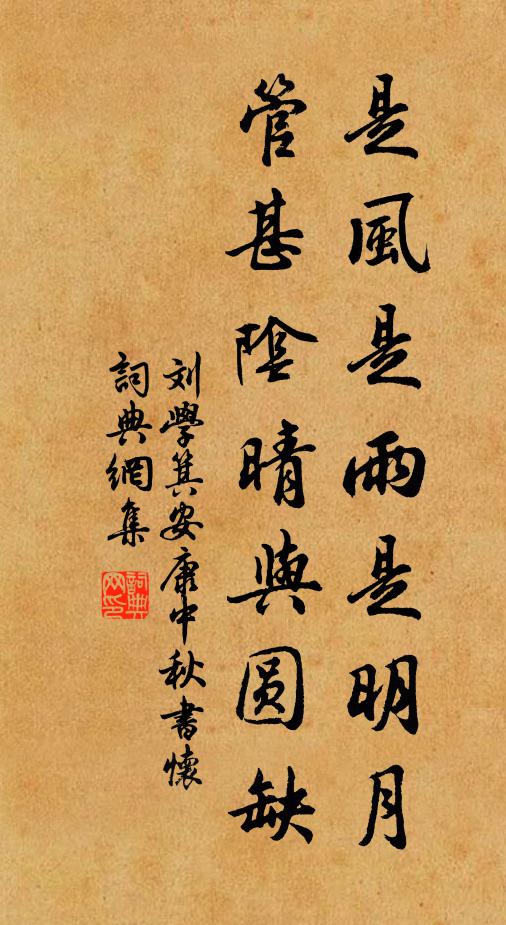 是風是雨是明月
管甚陰晴與圆缺
刘學箕安康中秋書懷
詞典網集
詞典网印